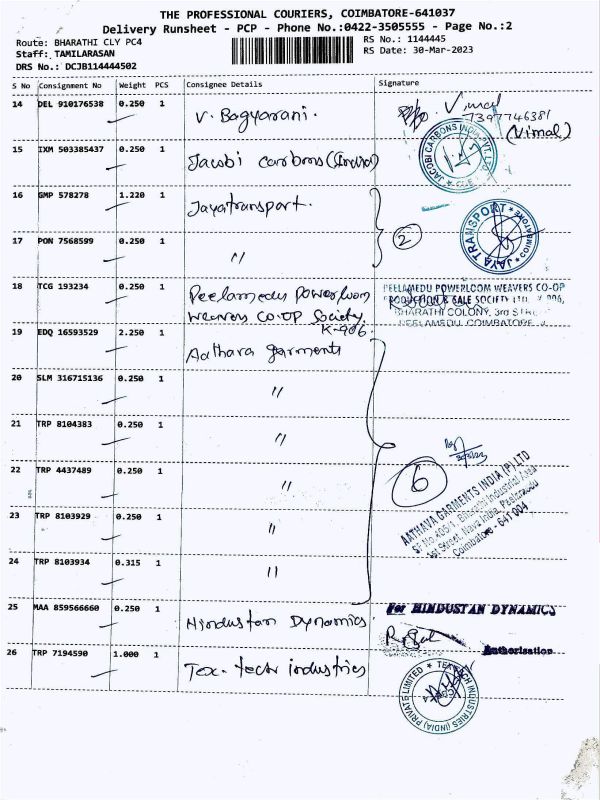 THE PROFESSIONAL COURIERS, COIMBATORE-641037
Delivery Runsheet - PCP - Phone No.:0422-3505555 - Page No.:2
Route: BHARATHI CLY PC4
RS No.: 1144445
Staff: TAMILARASAN
RS Date: 30-Mar-2023
DRS No.: DCJB114444502
S No Consignment No Weight PCS Consignee Details Signature
14 DEL 910176538 0.250 1 V. Bagyarani. Vimal
7397746381
(Vimal)
15 IXM 503385437 0.250 1 Jacobi carbons (India)
JACOBI CARBONS INDIA PVT. LTD.
16 GMP 578278 1.220 1 Jayatransport.
JAYA TRANSPORT
17 PON 7568599 0.250 1 〃 2
18 TCG 193234 0.250 1 Peelamedu Powerloom
weavers CO-OP Society.
K-906
PEELAMEDU POWERLOOM WEAVERS CO-OP
PRODUCTION & SALE SOCIETY LTD., K 906,
BHARATHI COLONY, 3rd STREET
PEELAMEDU, COIMBATORE
19 EDQ 16593529 2.250 1 Aathava garments
20 SLM 316715136 0.250 1 〃
21 TRP 8104383 0.250 1 〃
22 TRP 4437489 0.250 1 〃 6
AATHAVA GARMENTS INDIA (P) LTD
SF No.405/1, Bharathi Industrial Area
1st Street, Nava India, Peelamedu
Coimbatore - 641 004
23 TRP 8103929 0.250 1 〃
24 TRP 8103934 0.315 1 〃
25 MAA 859566660 0.250 1 Hindustan Dynamics
For HINDUSTAN DYNAMICS
Authorisation
26 TRP 7194590 1.000 1 Tex-tech industries
TEX TECH INDUSTRIES (INDIA) PRIVATE LIMITED